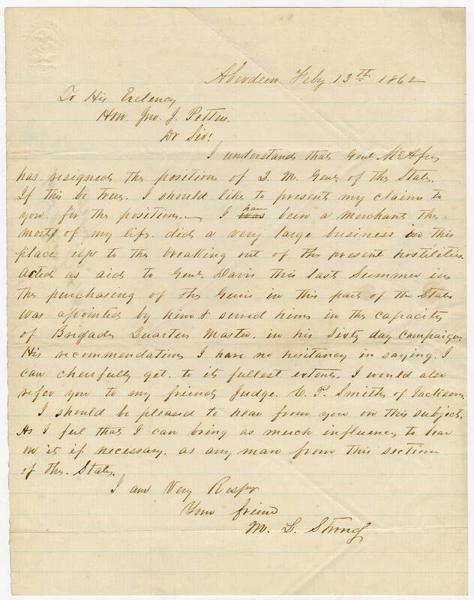 Aberdeen Feby 13th 1862
To His Exelency
Hon. Jno. J. Pettus
Dr Sir!
I understand that Genl McAfee
has resigned the position of Q. M. Genl of the State
If this be true. I should like to present my claims to
you for the position. I have been a Merchant the
most of my life. did a very large business in this
place up to the breaking out of the present hostilities
Acted as aid to Genl Davis this last Summer in
the purchasing of the Guns in this part of the State
was apointed by him & served him in the capacity
of Brigade Quarter Master in his sixty day campaign
His recommendation I have no hesitancy in saying. I
can cheerfully get. to its fullest extent. I would also
refer you to my friend Judge C. P. Smith of Jackson
I should be pleased to hear from you on this subject.
As I feel that I can bring as much influence to bear
on it if necessary. as any man from this section
of the State.
I am Very Respt
Your friend
M. L. Strong